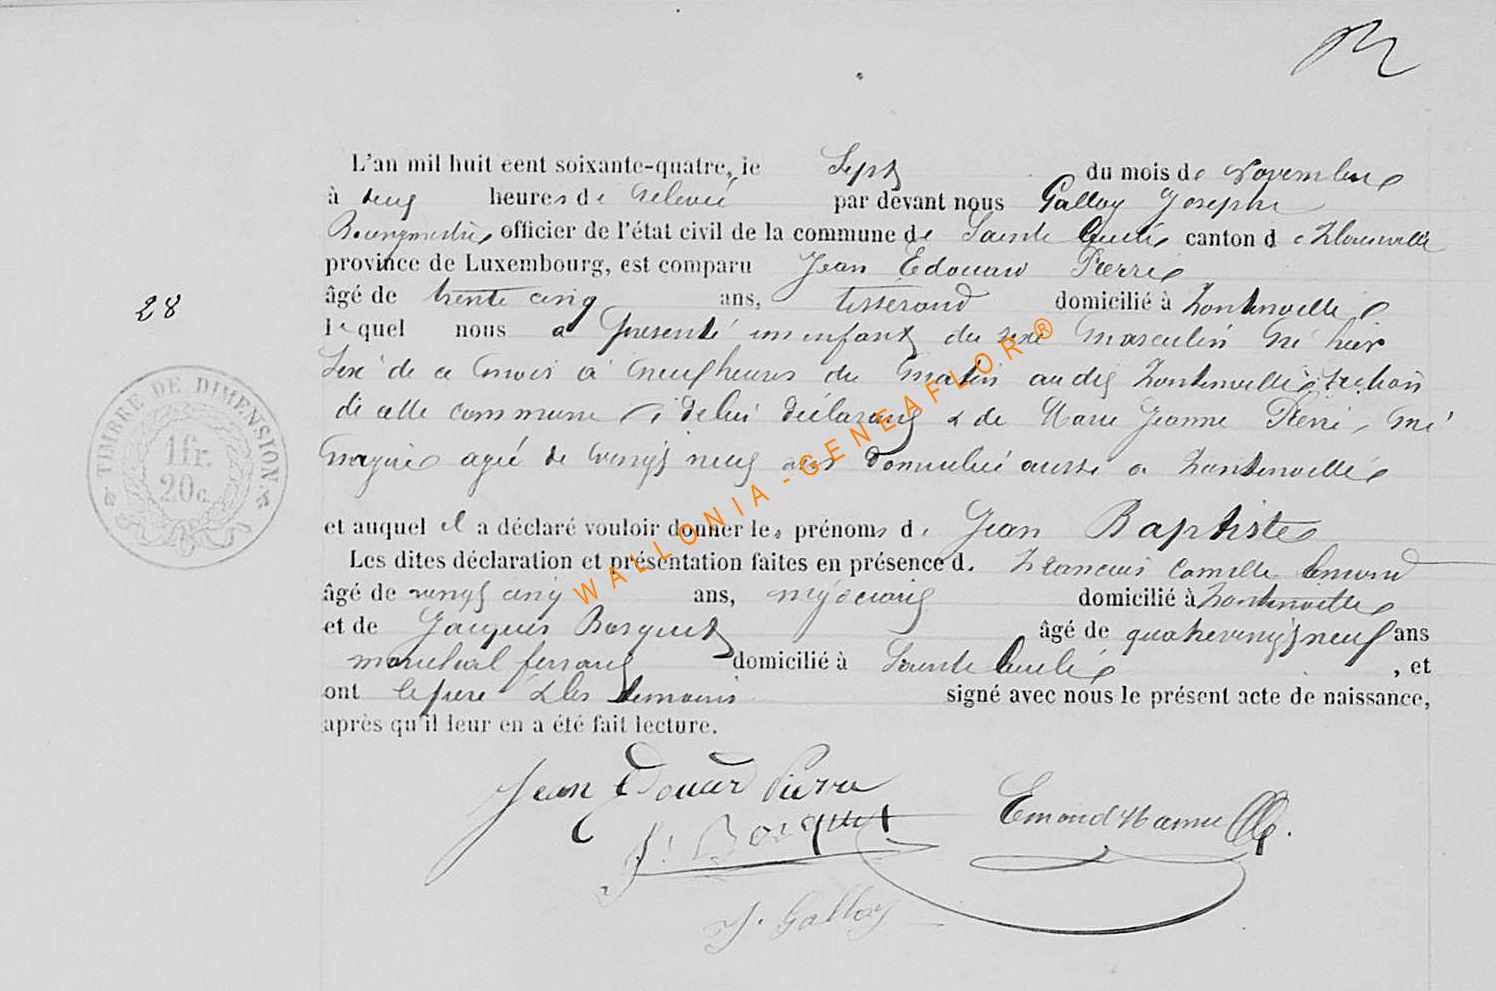 L'an mil huit cent soixante-quatre, le Sept du mois de Novembre
à deux heures de relevée par devant nous Galloy Joseph
Bourgmestre officier de l'état civil de la commune de Sainte Cecile canton de Florenville
province de Luxembourg, est comparu Jean Edouard Pierre
âgé de trente cinq ans, tisserand domicilié à Fontenoille
28
lequel nous a presenté un enfant du sexe masculin né hier
Six de ce mois à neuf heures du matin audit Fontenoille section
de cette commune de lui déclarant & de Marie Jeanne Pierre, né
agée de vingt neuf ans domiciliée aussi a Fontenoille
TIMBRE DE DIMENSION
1 fr.
20 c.
et auquel il a déclaré vouloir donner les prénoms de Jean Baptiste
Les dites déclaration et présentation faites en présence d. Francois Camille Emond
âgé de vingt cinq ans, négociant domicilié à Fontenoille
et de Jacques Bosquet âgé de quatrevingt neuf ans
marechal ferrant domicilié à Sainte Cecile, et
ont le pere & les temoins signé avec nous le présent acte de naissance,
après qu'il leur en a été fait lecture.
Jean Edouard Pierre
J. Bosquet
Emond
J. Galloy
WALLONIA - GENEAFLOR ®